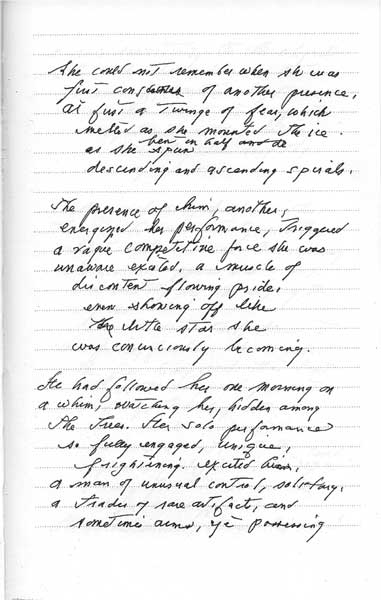 She could not remember when she was
first conscious of another presence,
at first a twinge of fear, which
melted as she mounted the ice.
as she spun bent in half and de
descending and ascending spirals.
The presence of him, another,
energyzed her performance, triggered
a vague competitive force she was
unaware existed, a muscle of
discontent flowing pride,
even showing off like
the little star she
was conciously becoming.
He had followed her one morning on
a whim, watching her, hidden among
the trees. Her solo performance
so fully engaged, unique,
frightining. excited him,
a man of unusual control, solitary,
a trader of rare artifacts, and
sometimes arms, possessing